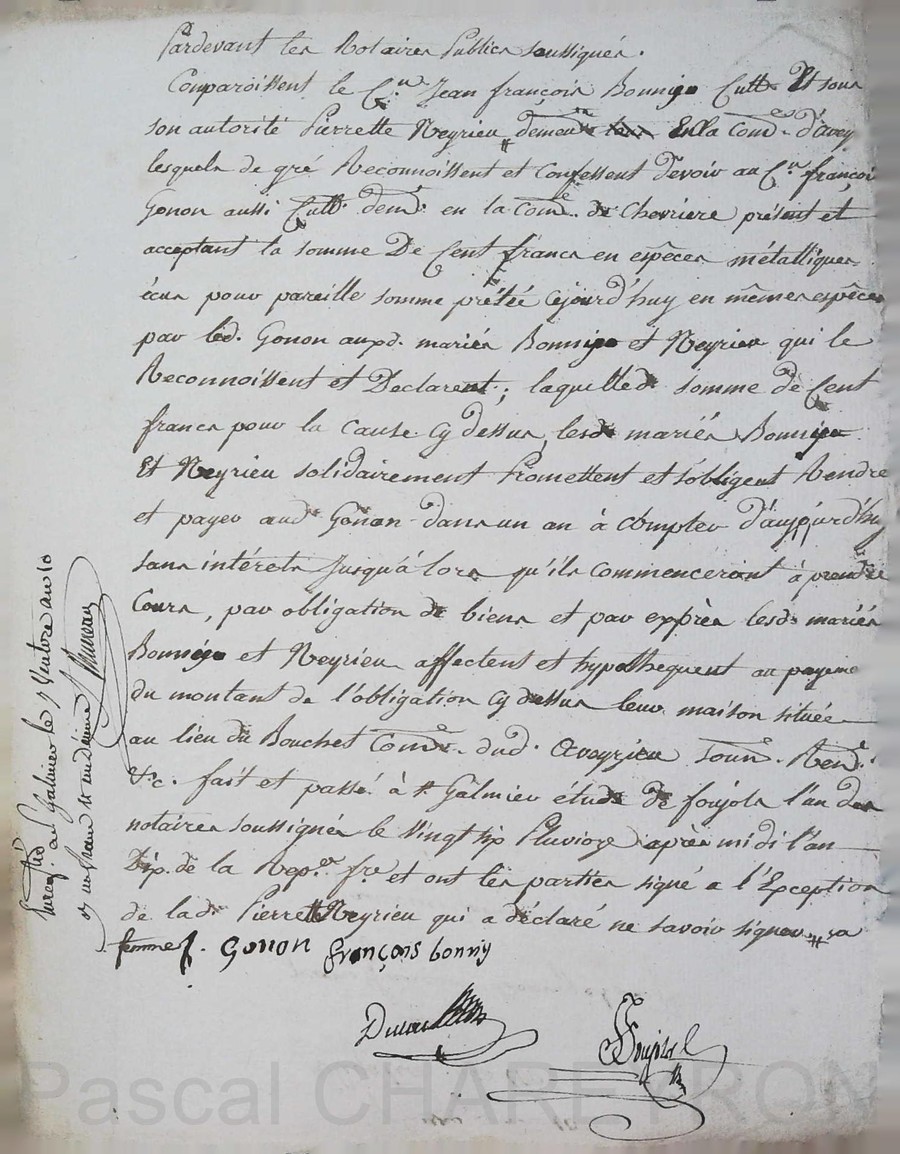 Pardevant les Notaires Publics soussignés.
Comparoissent le C.en Jean françois Bonnijo Cultr Et sous
son autorité Pierrette Neyrieu demeu en la Come. d'avey
lesquels de gré Reconnoissent et Confessent Devoir au C.en françois
Gonon aussi Cultr. demt. en la Come. de Chevriere présent et
acceptant la somme De Cent francs en espèces métalliques
écus pour pareille somme prétée cejourd'huy en mêmes espèces
par led. Gonon auxd. mariés Bonnijo et Neyrieu qui le
Reconnoissent et Declarent; laquelled somme de Cent
francs pour la Cause cy dessus, lesd mariés Bonnijo
Et Neyrieu solidairement Promettent et s'obligent Rendre
et payer aud Gonon dans un an à compter d'aujourd'huy
sans intérets jusqu'à lors qu'ils commenceront à prendre
Cours, par obligation de biens et par exprès lesd. mariés
Bonnijo et Neyrieu affectent et hypothequent au payeme
du montant de l'obligation cy dessus leur maison située
au lieu du Bouchet Come. dud. aveyrieu Soum. Renc.
&c. fait et passé à st Galmier étude de foujols l'un des
notaires soussignés le vingt six Pluviose après midi l'an
Dix de la Rep. fre et ont les parties signé a l'Exception
de lad. Pierrette Neyrieu qui a déclaré ne savoir signer # sa
femme f. Gonon françois bonny
Foujols
Enregtré à st Galmier le 5 Ventose an 10
un franc dixième
Pascal CHAREYRON